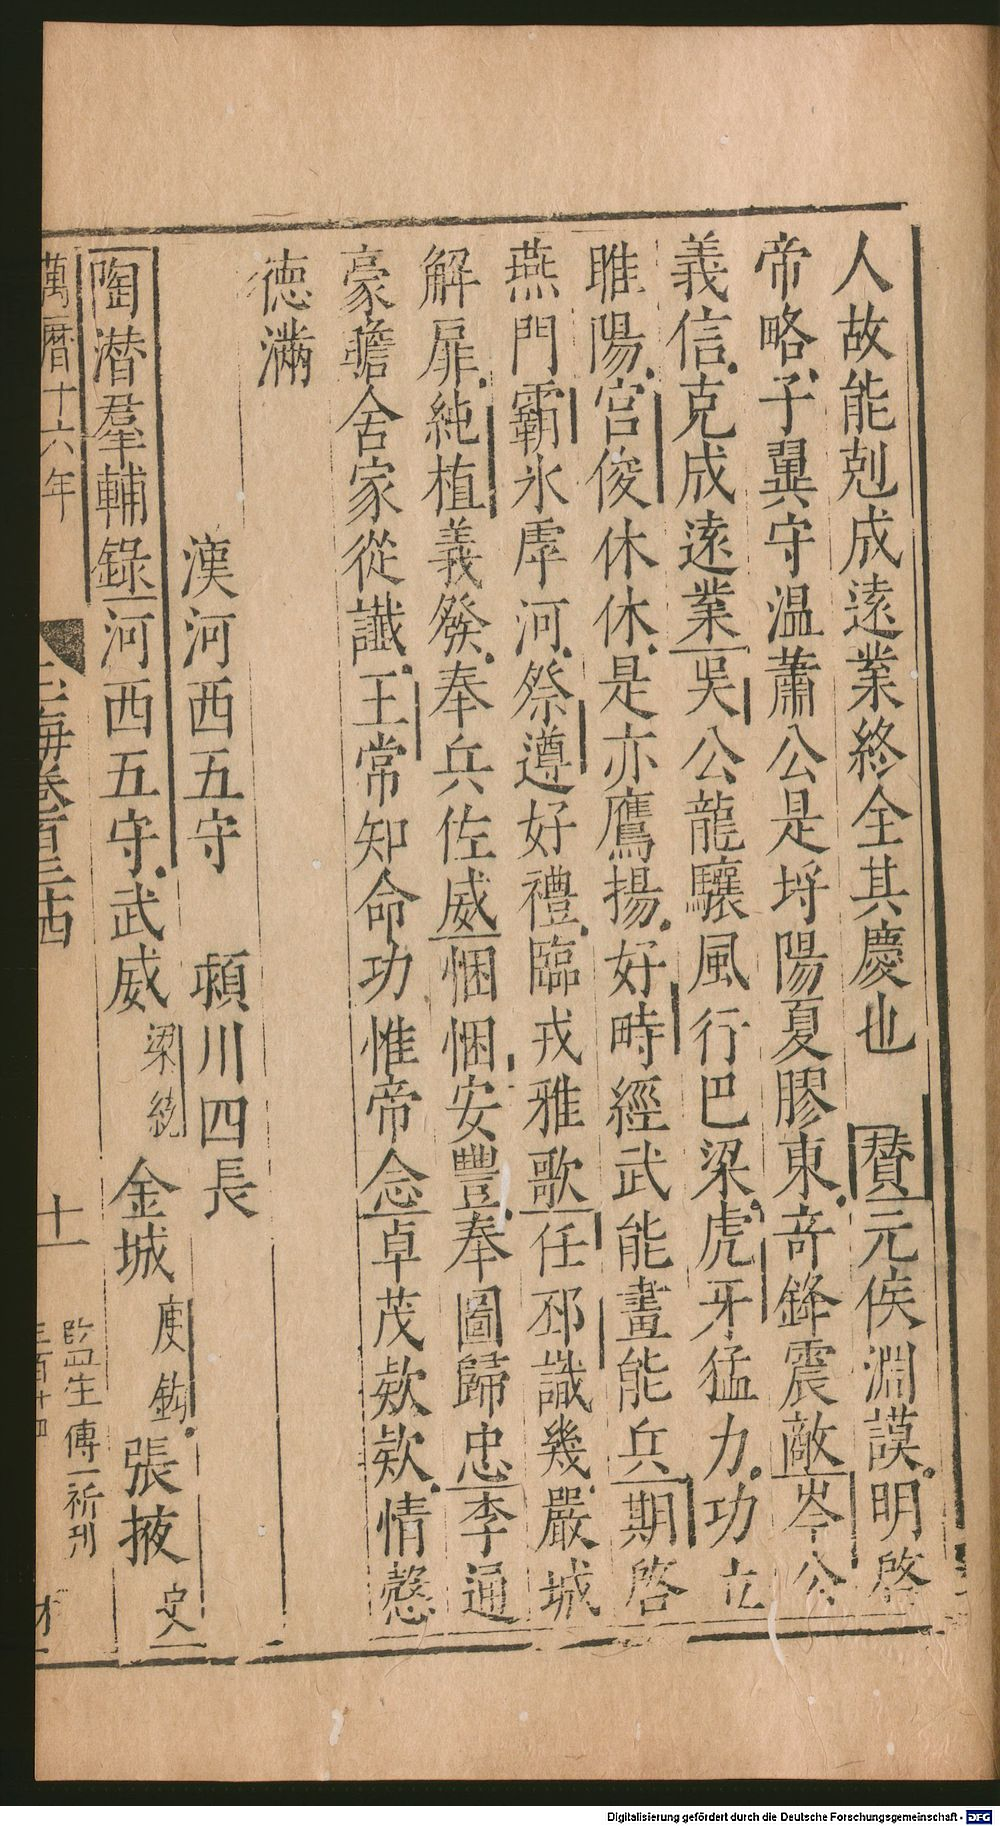 人故能剋成遠業終全其慶也　贊元侯淵謨明啓
帝略子翼守温蕭公是埒陽夏膠東竒鋒震敵岑公
義信克成遠業吳公龍驤風行巴梁虎牙猛力功立
睢陽宫俊休休是亦鷹揚好畤經武能畫能兵期啓
燕門霸氷虖河祭遵好禮臨戎雅歌任邳識幾嚴城
解扉純植義發奉兵佐威悃悃安豐奉圖歸忠李通
豪贍舍家從讖王常知命功惟帝念卓茂欵欵情愨
德滿
漢河西五守　潁川四長
陶潜羣輔錄河西五守武威梁統金城庫鈞張掖史
萬曆十六年
玉海卷百三十四
十一
監生傅一祈刊
Digitalisierung gefördert durch die Deutsche Forschungsgemeinschaft - DFG